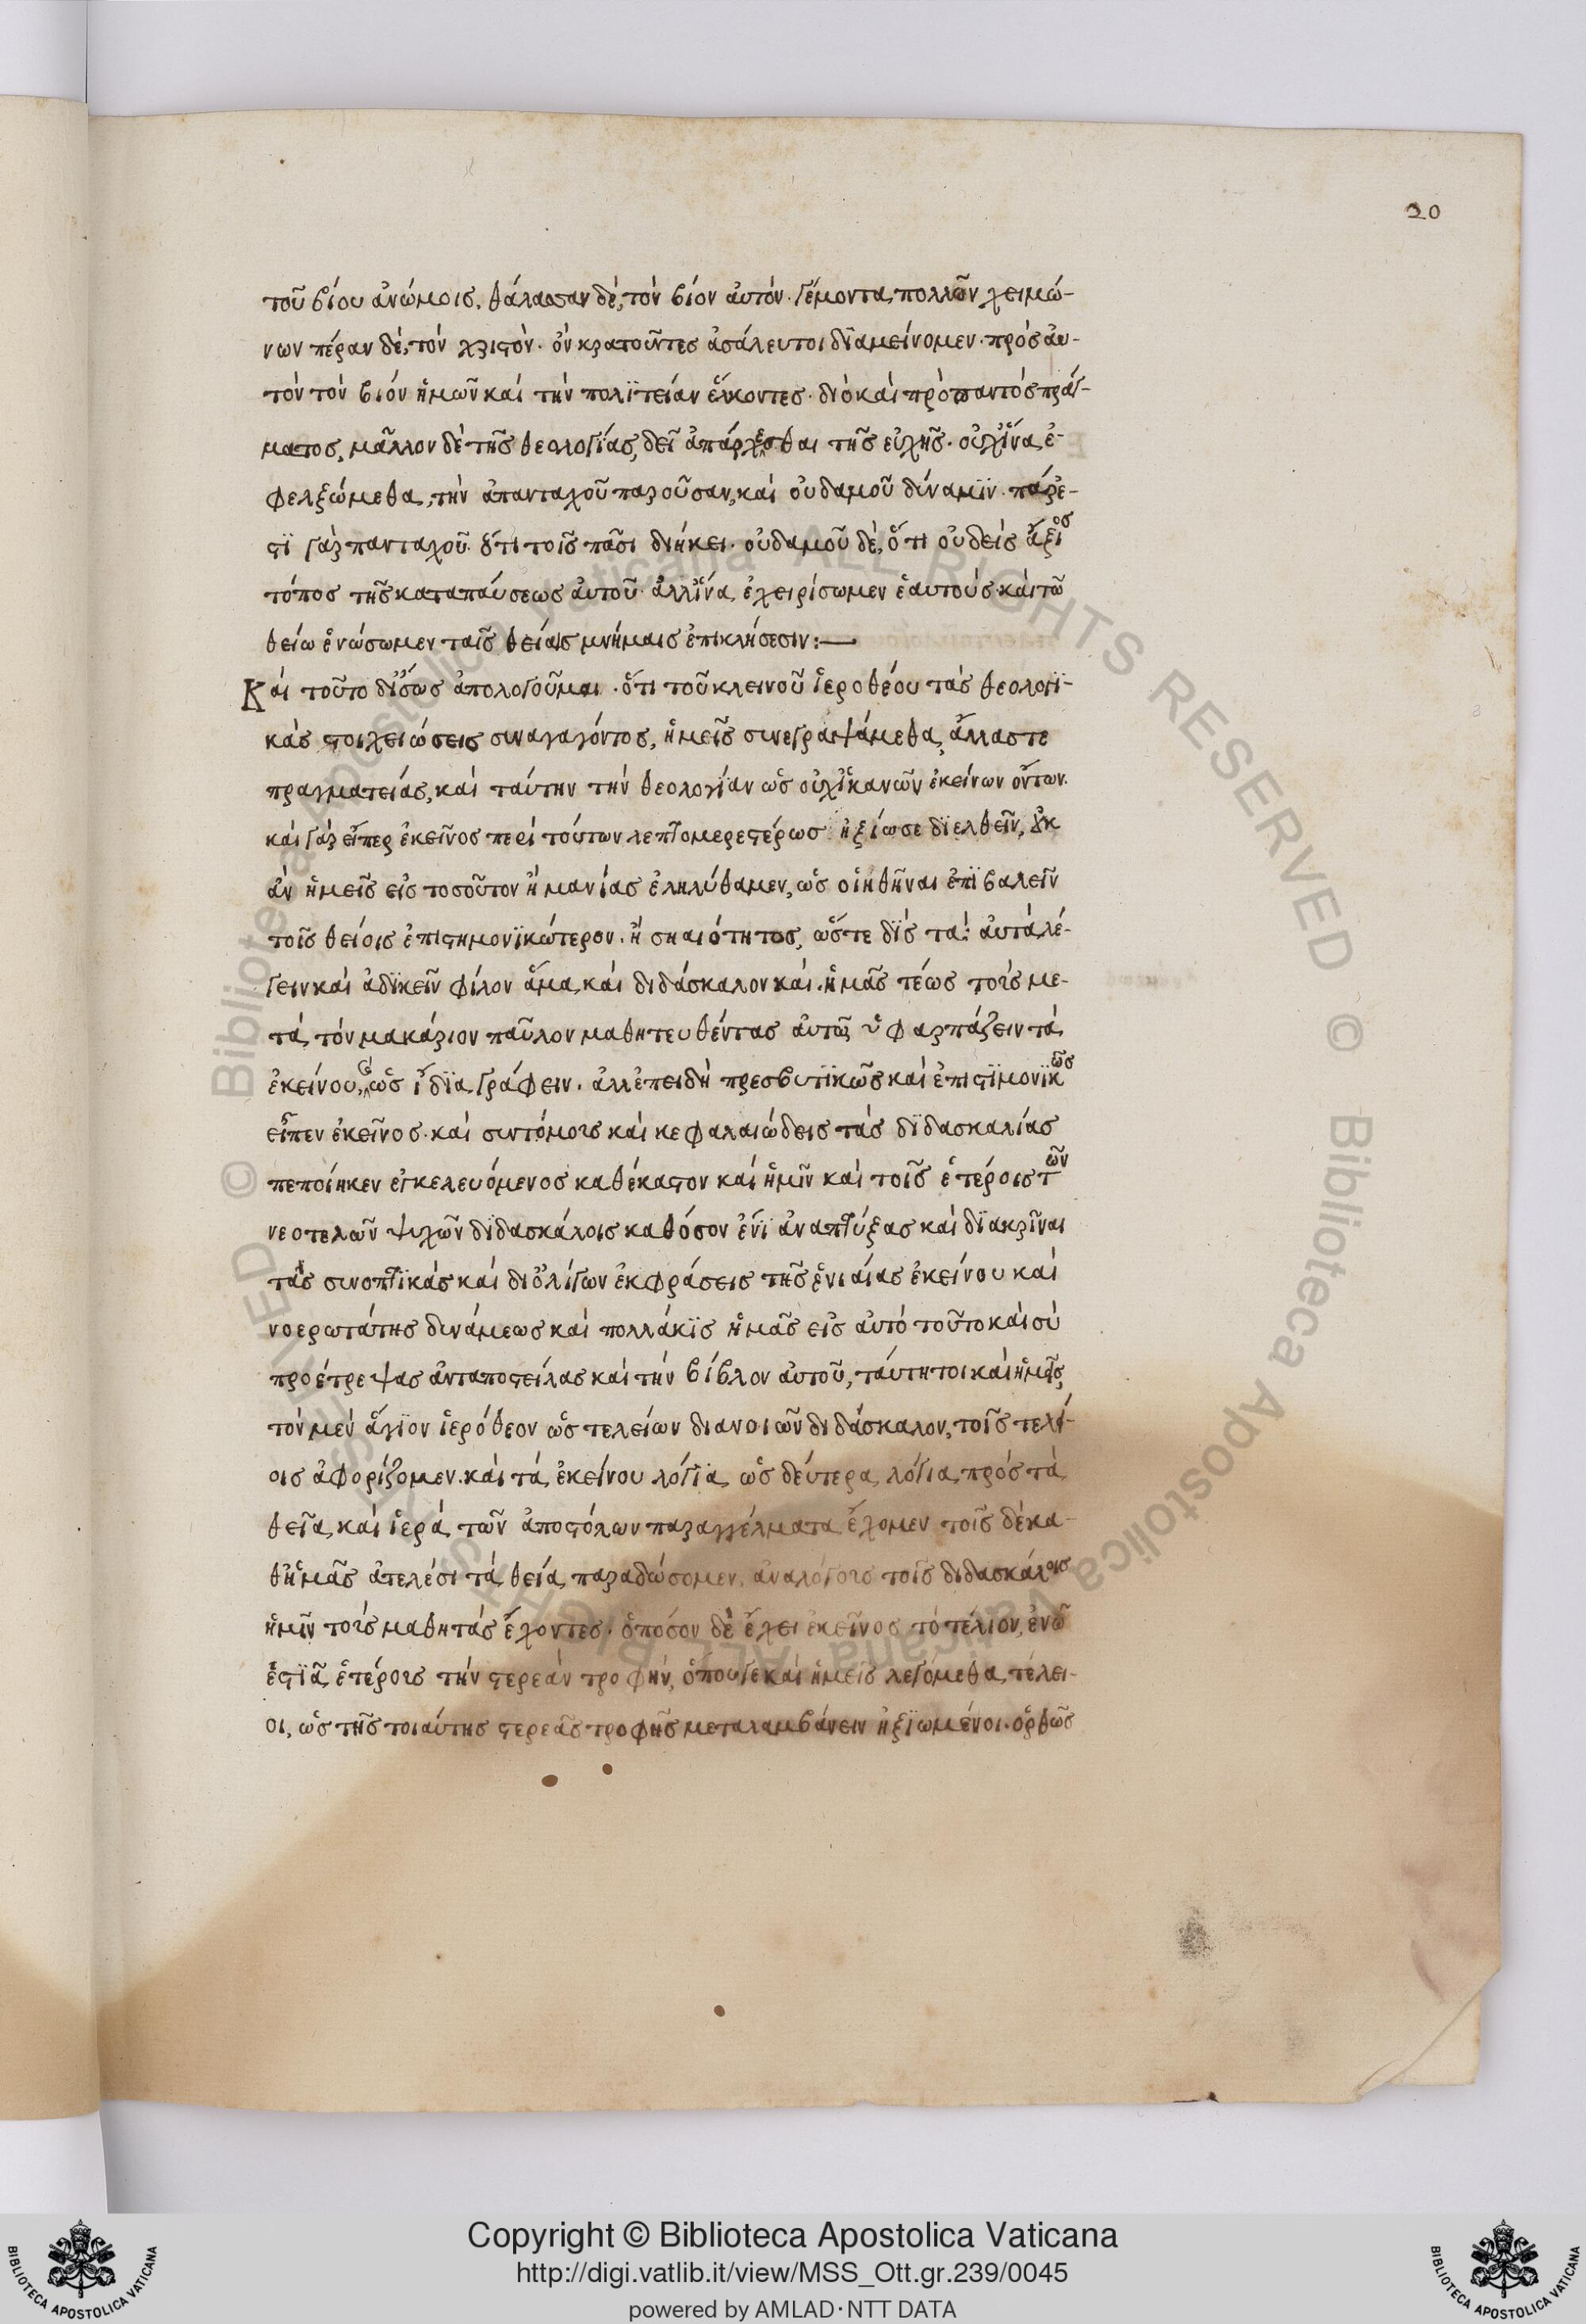 20
τοῦ βίου ἀνώμοις. θάλασσαν δὲ, τὸν βίον αὐτὸν. γέμοντα πολλῶν χειμώ-
νων πέραν δὲ, τὸν χριστὸν. ὃν κρατοῦντες ἀσάλευτοι διαμείνομεν. πρὸς αὐ-
τὸν τὸν βιόν ἡμῶν καὶ τὴν πολϊτείαν ἕλκοντες. διὸ καὶ πρὸ παντὸς πράγ-
ματος, μᾶλλον δὲ τῆς θεολογίας, δεῖ ἀπάρχεσθαι τῆς εὐχῆς. οὐχ ἵνα ἐ-
φελξώμεθα, τὴν ἁπανταχοῦ παροῦσαν, καὶ οὐδαμοῦ δύναμϊν. πάρε-
στϊ γὰρ πανταχοῦ ὅτι τοῖς πᾶσι διήκει. οὐδαμοῦ δὲ, ὅτι οὐδεὶς ἄξιος
τόπος τῆς καταπαύσεως αὐτοῦ. ἀλλ' ἵνα ἐχειρίσωμεν ἑαυτοὺς καὶ τῶ
θείω ἑνώσωμεν ταῖς θείαις μνήμαις ἐπικλήσεσιν:—
Καὶ τοῦτο δ' ἴσως ἀπολογοῦμαι. ὅτι τοῦ κλεινοῦ ἱεροθέου τὰς θεολογϊ-
κὰς στοιχειώσεις συναγαγόντος, ἡμεῖς συνεγραψάμεθα, ἄλλας τε
πραγματείας, καὶ ταύτην τὴν θεολογίαν ὡς οὐχ ἱκανῶν ἐκείνων ὄντων.
καὶ γὰρ εἴπερ ἐκεῖνος περὶ τούτων λεπτομερεστέρως ἠξίωσε διελθεῖν, οὐκ
ἂν ἡμεῖς εἰς τοσοῦτον ἢ μανίας ἐληλύθαμεν, ὡς οἰηθῆναι ἐπϊβαλεῖν
τοῖς θείοις ἐπιστημονϊκώτερον. ἢ σκαιότητος, ὥστε δὶς τὰ αὐτὰ λέ-
γειν καὶ ἀδϊκεῖν φίλον ἅμα καὶ διδάσκαλον καὶ ἡμᾶς τέως τοὺς με-
τὰ τὸν μακάριον παῦλον μαθητευθέντας αὐτῶ ὑφαρπάζειν τὰ
ἐκείνου, ὡς ἴδϊα γράφειν. ἀλλ' ἐπειδὴ πρεσβυτϊκῶς καὶ ἐπιστϊμονϊκῶς
εἶπεν ἐκεῖνος. καὶ συντόμους καὶ κεφαλαιώδεις τὰς δϊδασκαλίας
πεποίηκεν ἐγκελευόμενος καθέκαστον καὶ ἡμῖν καὶ τοῖς ἑτέροις τῶν
νεοτελῶν ψυχῶν δϊδασκάλοις καθόσον ἐνϊ ἀναπτύξας καὶ δϊακρῖναι
τὰς συνοπτϊκὰς καὶ δι' ὀλίγων ἐκφράσεις τῆς ἑνιαίας ἐκείνου καὶ
νοερωτάτης δυνάμεως καὶ πολλάκϊς ἡμᾶς εἰς αὐτὸ τοῦτο καὶ σὺ
προέτρεψας ἀνταποστείλας καὶ τὴν βίβλον αὐτοῦ, ταύτητοι καὶ ἡμεῖς,
τὸν μὲν ἅγϊον ἱερόθεον ὡς τελείων διανοιῶν διδάσκαλον, τοῖς τελεί-
οις ἀφορίζομεν. καὶ τὰ ἐκείνου λόγϊα, ὡς δεύτερα λόγια πρὸς τὰ
θεῖα καὶ ἱερὰ τῶν ἀποστόλων παραγγέλματα ἔχομεν τοῖς δὲ κα-
θ' ἡμᾶς ἀτελέσι τὰ θεία παραδώσομεν. ἀναλόγους τοῖς διδασκάλοις
ἡμῖν τοὺς μαθητὰς ἔχοντες. ὁπόσον δὲ ἔχει ἐκεῖνος τὸ τέλιον, ἐν ᾧ
ἑστϊᾶ ἑτέρους τὴν στερεὰν τροφήν, ὅπουγε καὶ ἡμεῖς λεγόμεθα τέλει-
οι, ὡς τῆς τοιαύτης στερεᾶς τροφῆς μεταλαμβάνειν ἠξϊωμένοι. ὀρθῶς
© Biblioteca Apostolica Vaticana ALL RIGHTS RESERVED
Copyright © Biblioteca Apostolica Vaticana
http://digi.vatlib.it/view/MSS_Ott.gr.239/0045
powered by AMLAD·NTT DATA
BIBLIOTECA APOSTOLICA VATICANA
BIBLIOTECA APOSTOLICA VATICANA